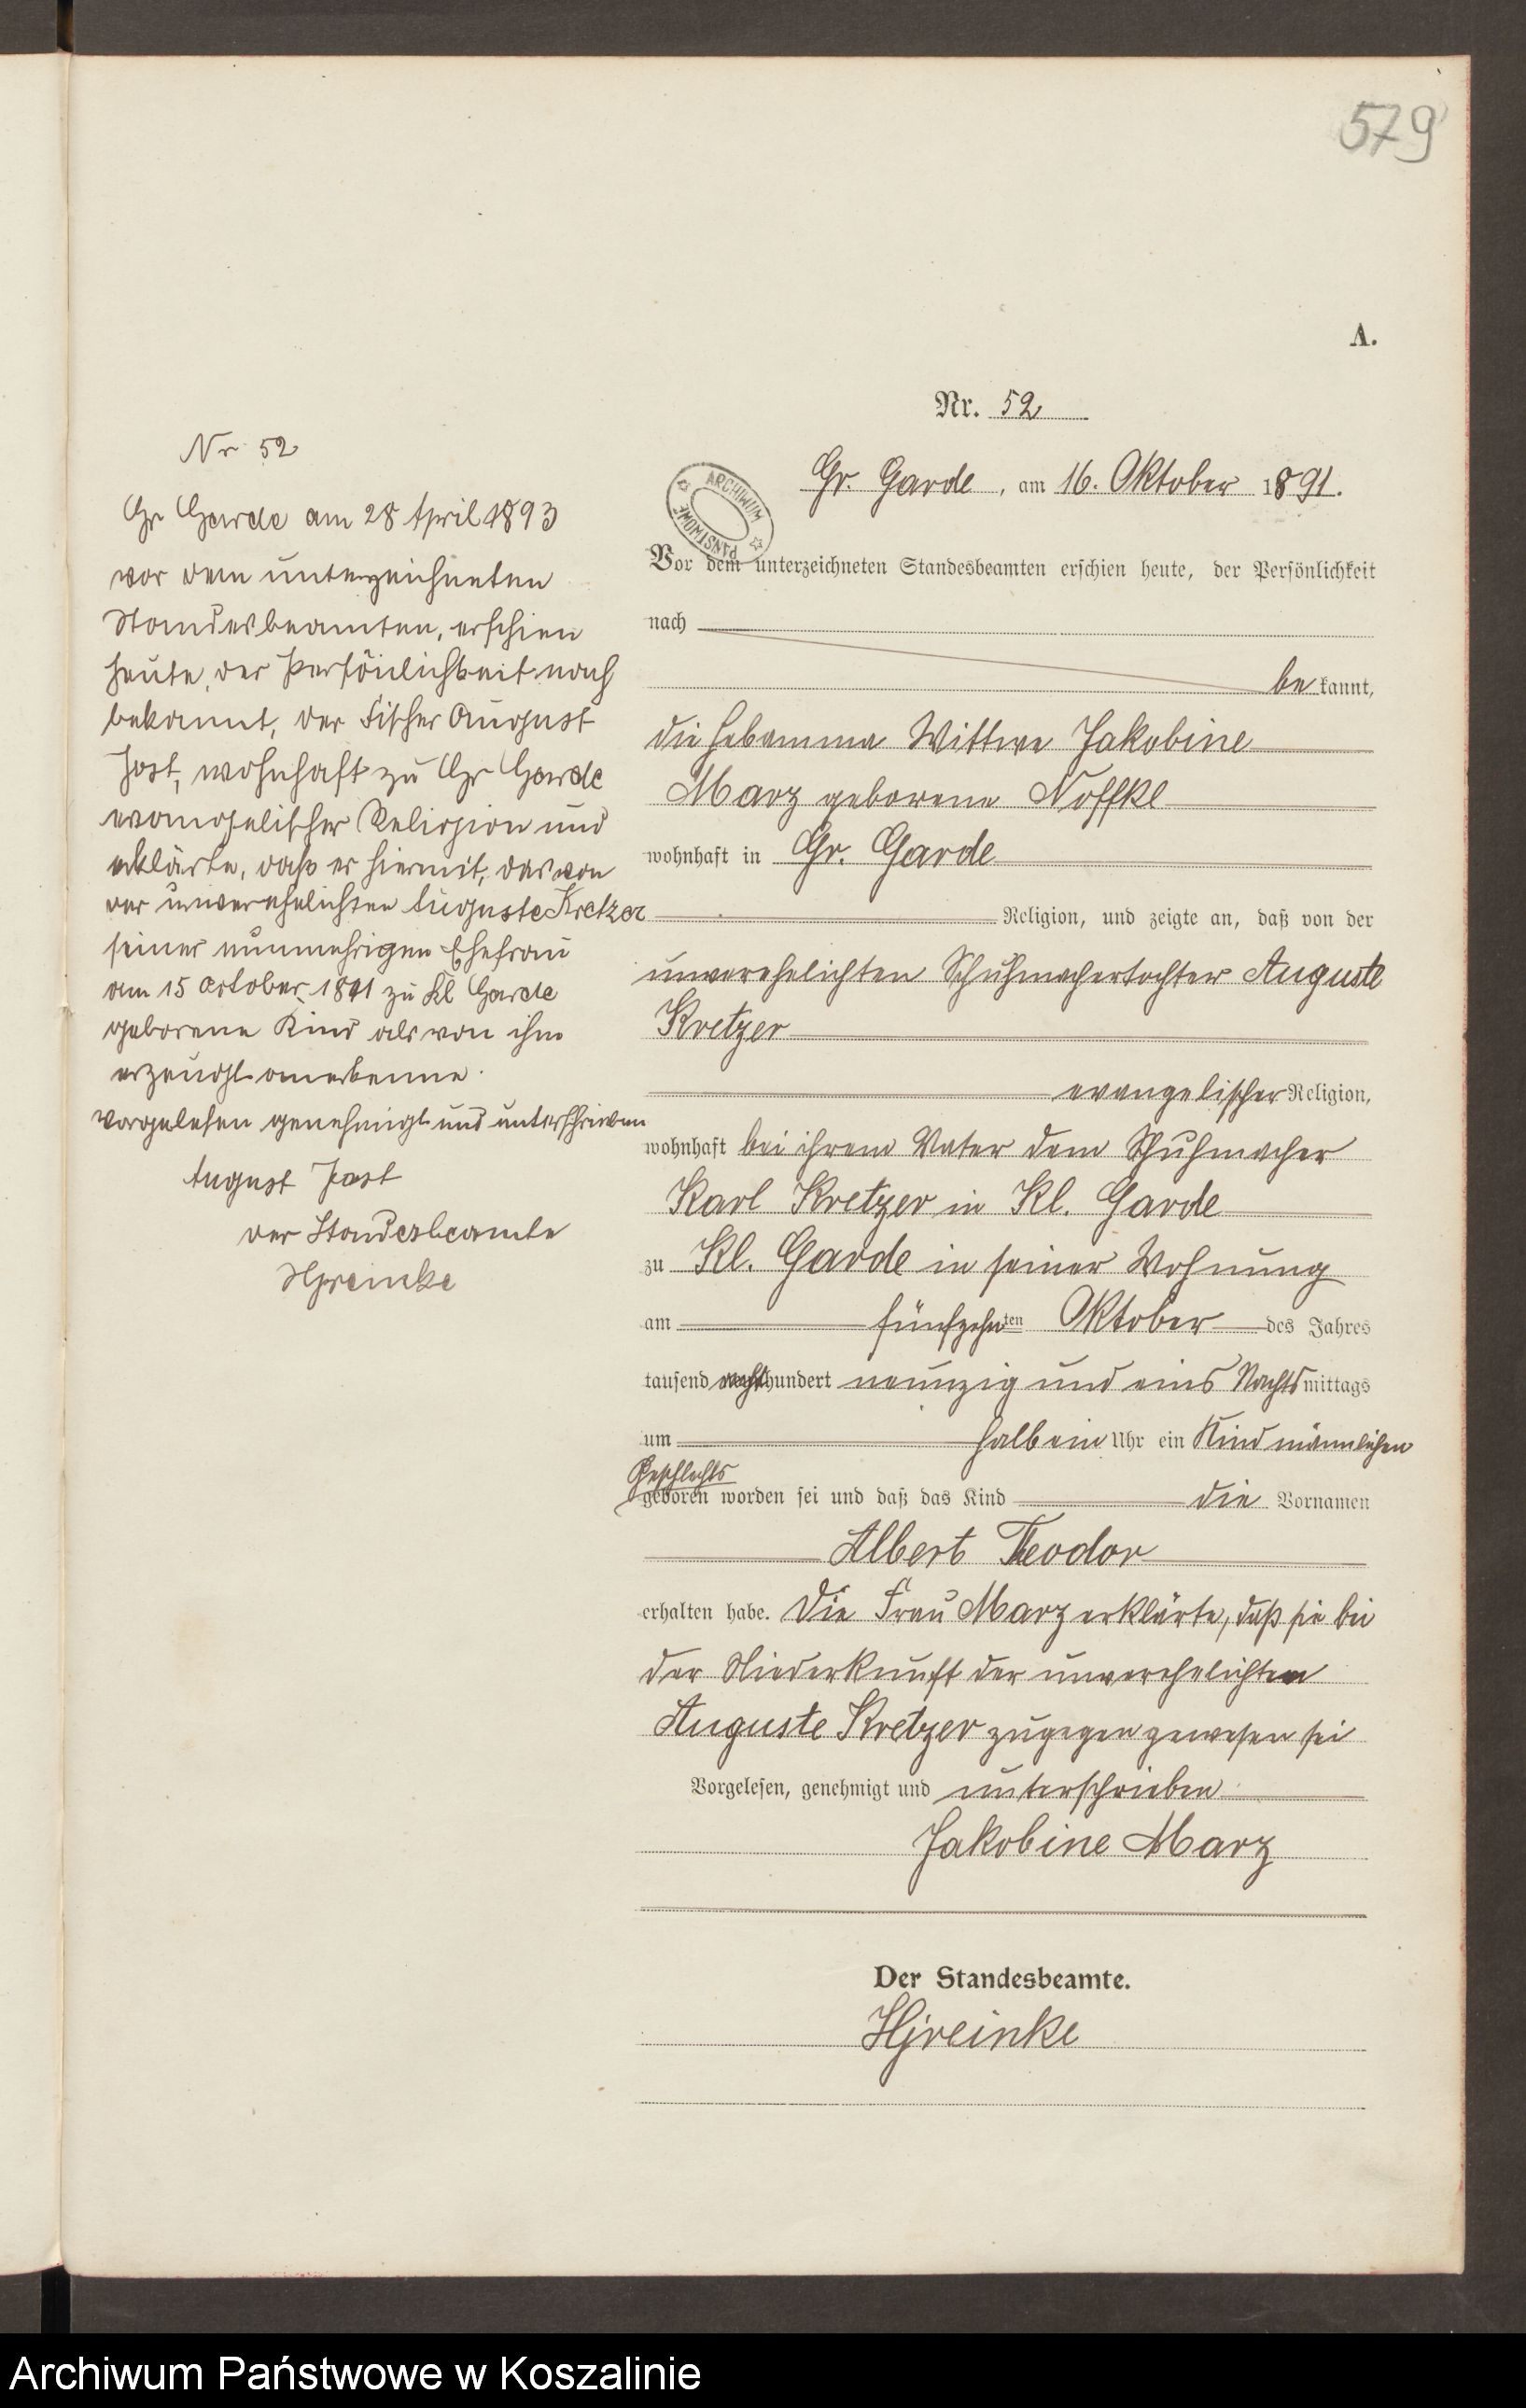 579
A.
Nr. 52
Gr. Garde, am 16. Oktober 1891.
ARCHIWUM PAŃSTWOWE
Vor dem unterzeichneten Standesbeamten erschien heute, der Persönlichkeit
nach
be kannt,
die Hebamme Wittwe Jakobine
Marz geborene Noffke
wohnhaft in Gr. Garde
Religion, und zeigte an, daß von der
unverehelichten Schuhmachertochter Auguste
Kretzer
evangelischer Religion,
wohnhaft bei ihrem Vater dem Schuhmacher
Karl Kretzer in Kl. Garde
zu Kl. Garde in seiner Wohnung
am fünfzehn ten Oktober des Jahres
tausend acht hundert neunzig und eins Nachts mittags
um halb ein Uhr ein Kind männlichen
Geschlechts
geboren worden sei und daß das Kind die Vornamen
Albert Theodor
erhalten habe. Die Frau Marz erklärte, daß sie bei
der Niederkunft der unverehelichten
Auguste Kretzer zugegen gewesen sei
Vorgelesen, genehmigt und unterschrieben
Jakobine Marz
Der Standesbeamte.
HJreinke
Nr 52
Gr Garde am 28 April 1893
vor dem unterzeichneten
Standesbeamten, erschien
heute, der Persönlichkeit nach
bekannt, der Fischer August
Jost, wohnhaft zu Gr Garde
evangelischer Religion und
erklärte, daß er hiermit, das von
der unverehelichten Auguste Kretzer
seiner nunmehrigen Ehefrau
am 15 October 1891 zu Kl Garde
geborene Kind als von ihm
erzeugt anerkenne.
Vorgelesen genehmigt und unterschrieben
August Jost
Der Standesbeamte
HJreinke
Archiwum Państwowe w Koszalinie